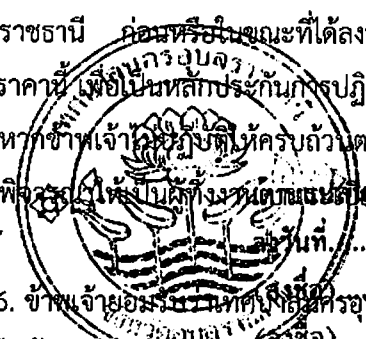 ราชธานี ก่อนหรือในขณะที่ได้ลง
ราคานี้ เพื่อเป็นหลักประกันการปฏิ
หากข้าพเจ้าไม่ปฏิบัติให้ครบถ้วนต
พิจารณาให้เป็นผู้ทิ้งงาน
ลงวันที่.....
(ลงชื่อ)
6. ข้าพเจ้ายอมรับว่าเทศบาลนครอุ
(ลงชื่อ)